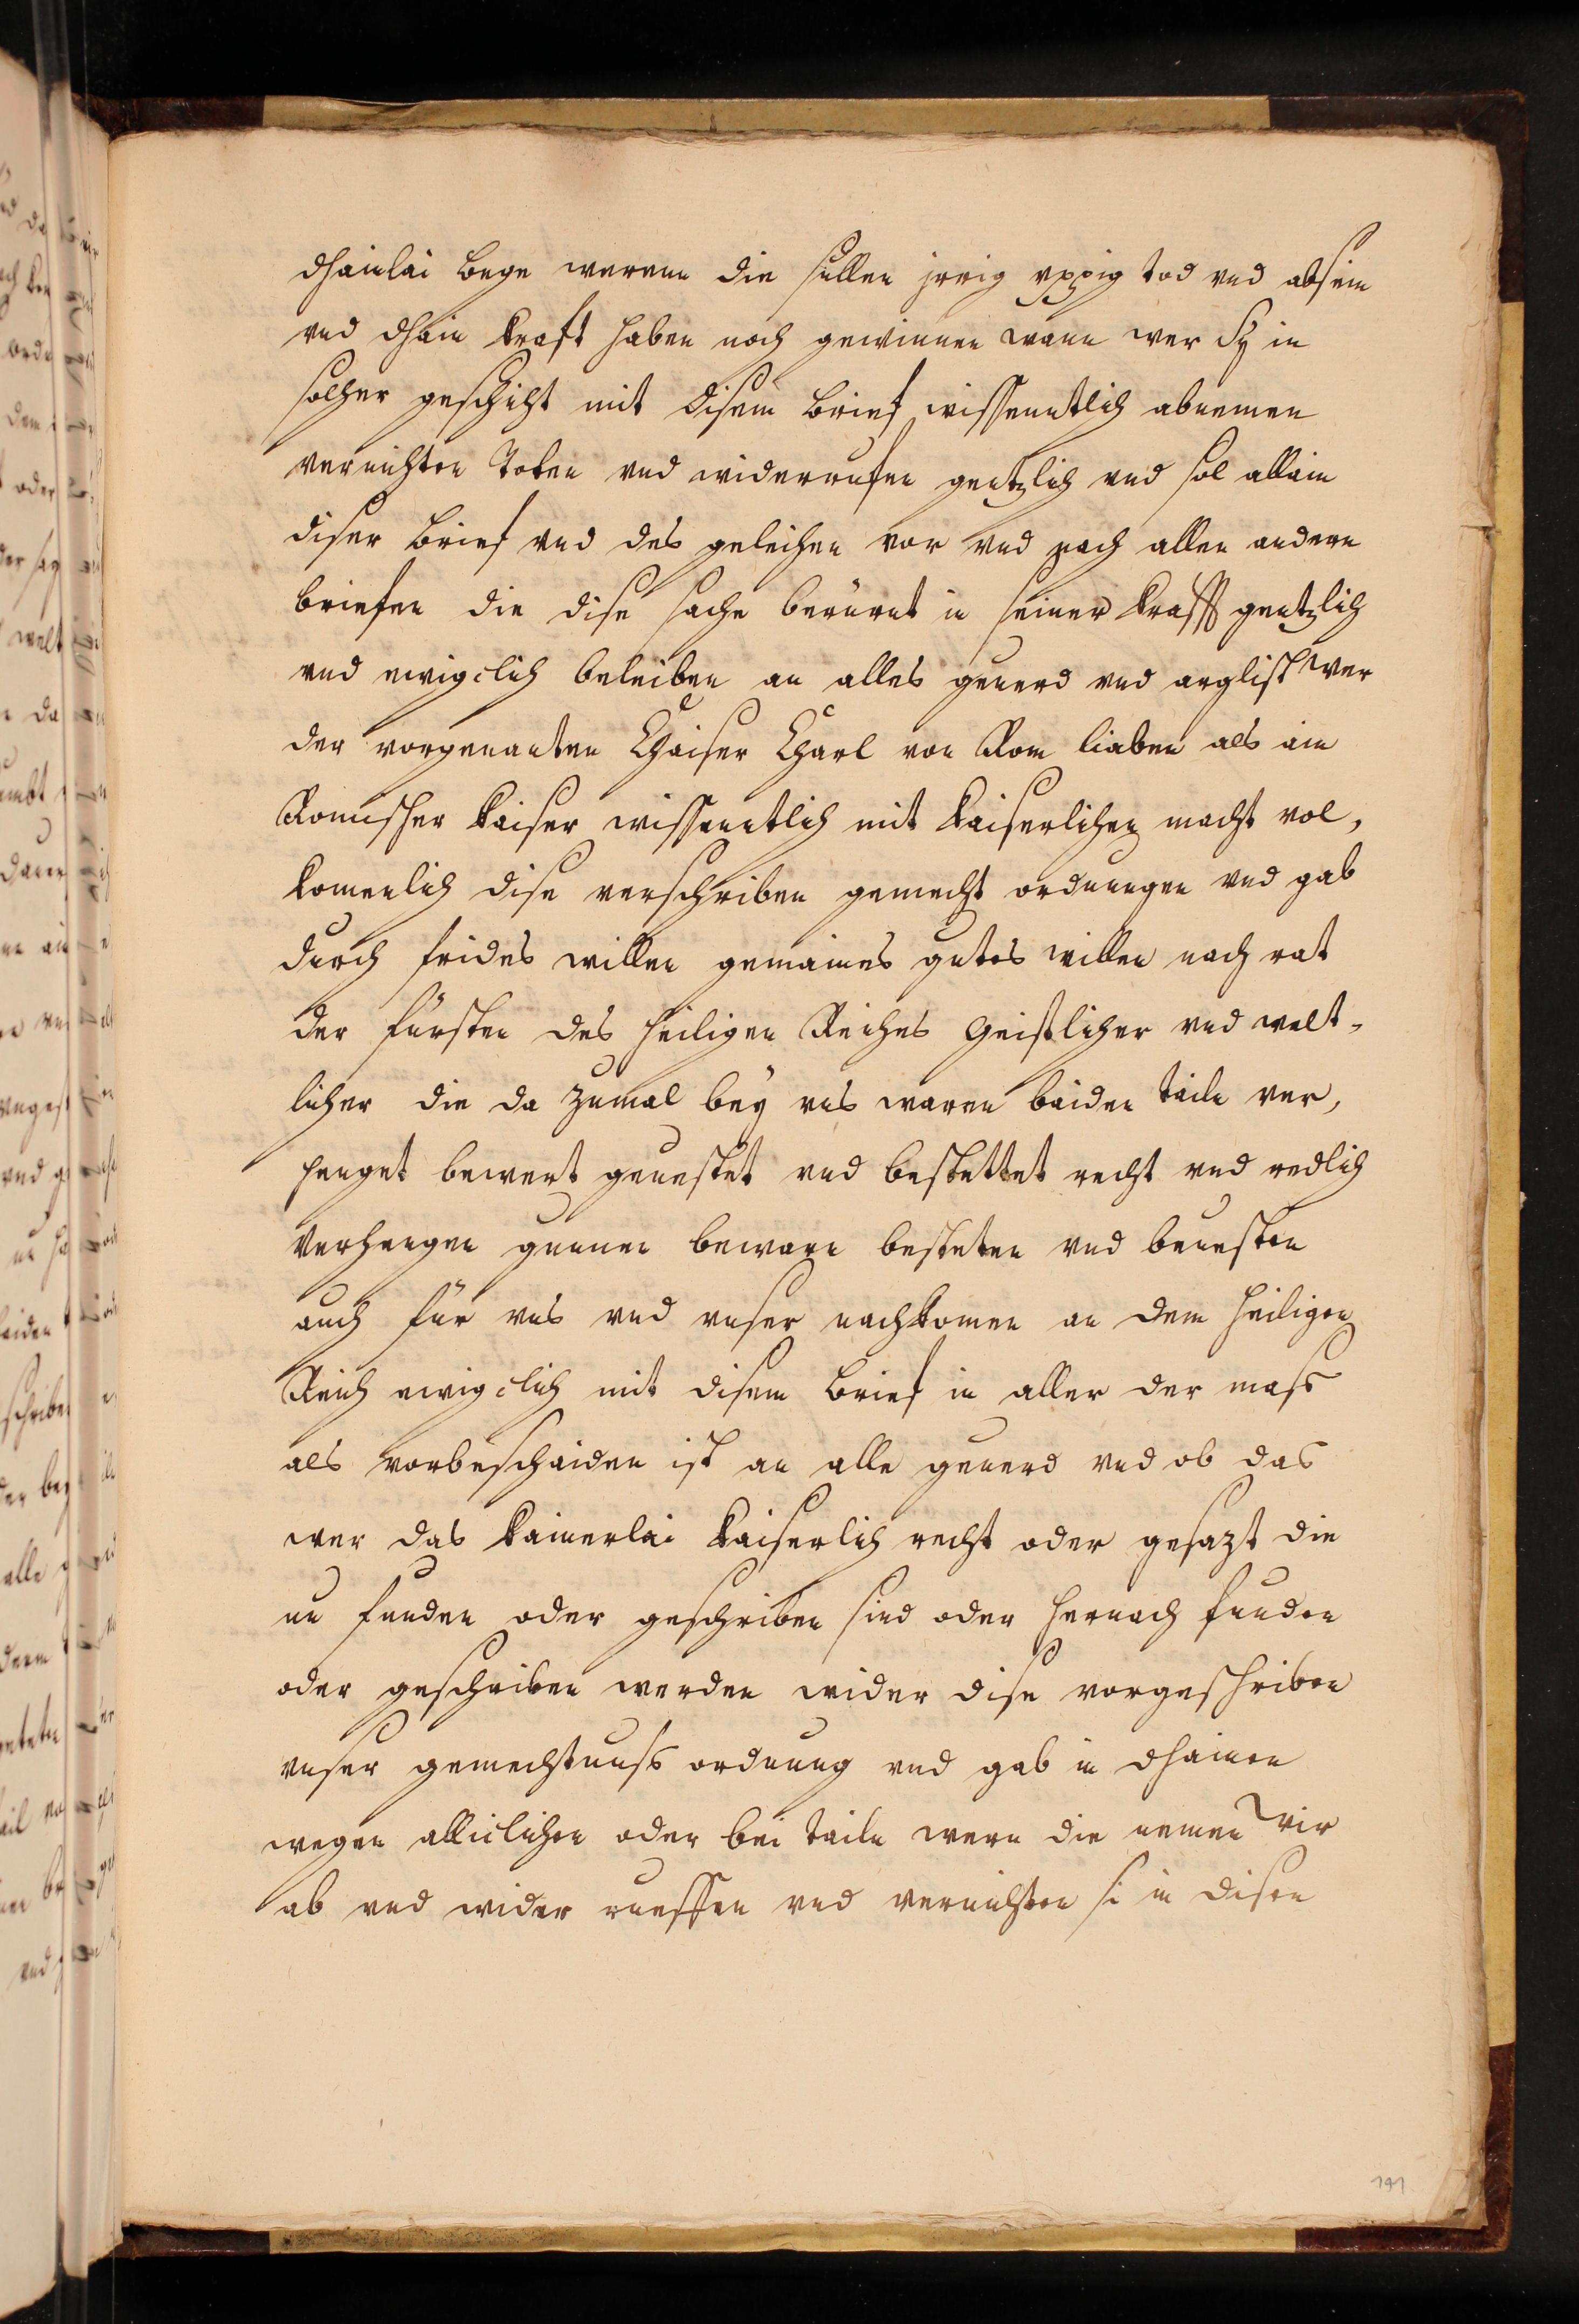 dhainlai bege werenn die sullen jrrig vppig tod vnd absein
vnd dhain kraft haben noch gewinnen wann wer Sy in
solher geschiht mit disem brief wissenntlich abnemen
vernichten Toten vnd widerrufen gentzlich vnd sol allain
diser brief vnd des geleichen vor vnd nach allen andern
briefen die dise sache berürnt in seiner krafft gentzlich
vnd ewigclich beleiben an alles geuerd vnd arglist wer
der vorgenanten Chaiser Charl von Rom liaben als ain
Romischer kaiser wissenntlich mit kaiserlichen macht vol,
komenlich dise verschriben gemecht ordnungen vnd gab
durch frides willen gemaines gutes willen nach rat
der fürsten des heiligen Reiches Geistlicher vnd welt,
licher die da zumal bey vns waren baiden taile ver,
henget bewert geuestet vnd bestettet recht vnd redlich
Verhengen gunnen bewarn besteten vnd beuesten
auch für vns vnd vnser nachkomen an dem heiligen
Reich ewigclich mit disem brief in aller der mass
als vorbeschaiden ist an alle geuerd vnd ob das
wer das kainerlai kaiserlich recht oder gesazt die
nu funden oder geschriben sind oder hernach funden
oder geschriben werden wider dise vorgeschriben
vnser gemechtnuss ordnung vnd gab in dhainen
wegen alliclichen oder bei taile wern die nemen wir
ab vnd wider rueffen vnd vernichten si in disen
191